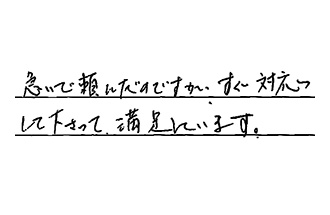 急いで頼んだのですが、すぐ対応
して下さって、満足しています。